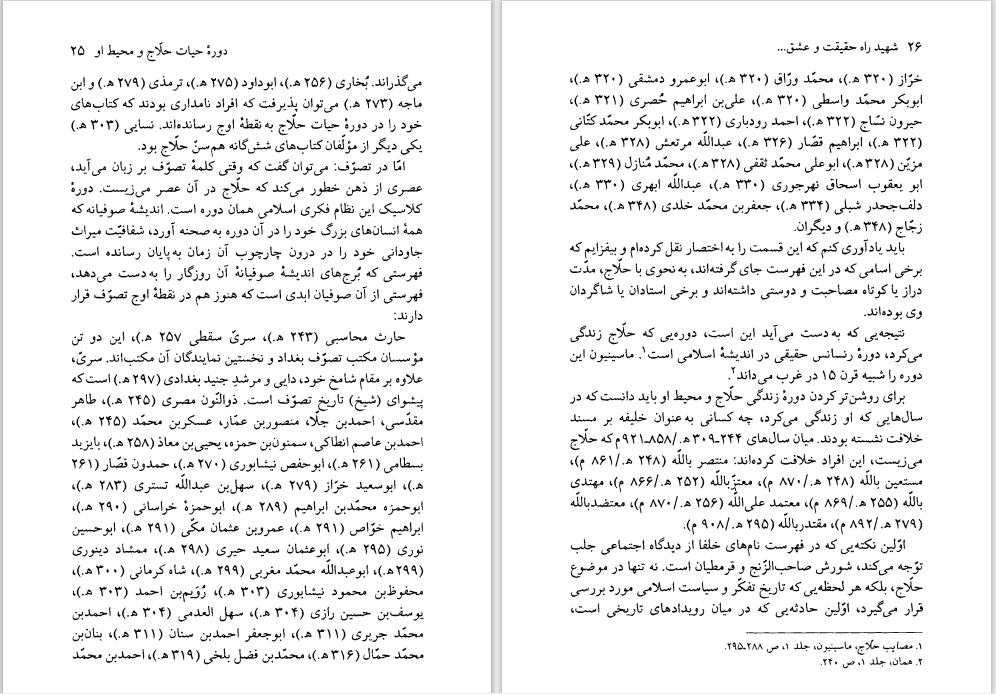 دورهٔ حیات حلّاج و محیط او ۲۵
می‌گذراند. بُخاری (۲۵۶ ه‍.)، ابوداود (۲۷۵ ه‍.)، ترمذی (۲۷۹ ه‍.) و ابن
ماجه (۲۷۳ ه‍.) می‌توان پذیرفت که افراد نامداری بودند که کتاب‌های
خود را در دورهٔ حیات حلّاج به نقطهٔ اوج رسانده‌اند. نسایی (۳۰۳ ه‍.)
یکی دیگر از مؤلّفان کتاب‌های شش‌گانه هم‌سنّ حلّاج بود.
امّا در تصوّف: می‌توان گفت که وقتی کلمهٔ تصوّف بر زبان می‌آید،
عصری از ذهن خطور می‌کند که حلّاج در آن عصر می‌زیست. دورهٔ
کلاسیک این نظام فکری اسلامی همان دوره است. اندیشهٔ صوفیانه که
همهٔ انسان‌های بزرگ خود را در آن دوره به صحنه آورد، شفافیّت میراث
جاودانی خود را در درون چارچوب آن زمان به پایان رسانده است.
فهرستی که بُرج‌های اندیشهٔ صوفیانهٔ آن روزگار را به دست می‌دهد،
فهرستی از آن صوفیان ابدی است که هنوز هم در نقطهٔ اوج تصوّف قرار
دارند:
حارث محاسبی (۲۴۳ ه‍.)، سریّ سقطی (۲۵۷ ه‍.)، این دو تن
مؤسسان مکتب تصوّف بغداد و نخستین نمایندگان آن مکتب‌اند. سریّ،
علاوه بر مقام شامخ خود، دایی و مرشدِ جنید بغدادی (۲۹۷ ه‍.) است که
پیشوای (شیخ) تاریخ تصوّف است. ذوالنّون مصری (۲۴۵ ه‍.)، طاهر
مقدّسی، احمدبن جلّا، منصوربن عمّار، عسکربن محمّد (۲۴۵ ه‍.)،
احمدبن عاصم انطاکی، سمنون‌بن حمزه، یحیی‌بن معاذ (۲۵۸ ه‍.)، بایزید
بسطامی (۲۶۱ ه‍.)، ابوحفص نیشابوری (۲۷۰ ه‍.)، حمدون قصّار (۲۶۱
ه‍.)، ابوسعید خرّاز (۲۷۹ ه‍.)، سهل‌بن عبداللّه تستری (۲۸۳ ه‍.)،
ابوحمزه محمّدبن ابراهیم (۲۸۹ ه‍.)، ابوحمزهٔ خراسانی (۲۹۰ ه‍.)،
ابراهیم خوّاص (۲۹۱ ه‍.)، عمروبن عثمان مکّی (۲۹۱ ه‍.)، ابوحسین
نوری (۲۹۵ ه‍.)، ابوعثمان سعید حیری (۲۹۸ ه‍.)، ممشاد دینوری
(۲۹۹ه‍.)، ابوعبداللّه محمّد مغربی (۲۹۹ ه‍.)، شاه کرمانی (۳۰۰ ه‍.)،
محفوظ‌بن محمود نیشابوری (۳۰۳ ه‍.)، رُوَیم‌بن احمد (۳۰۳ ه‍.)،
یوسف‌بن حسین رازی (۳۰۴ ه‍.)، سهل العدمی (۳۰۴ ه‍.)، احمدبن
محمّد جریری (۳۱۱ ه‍.)، ابوجعفر احمدبن سنان (۳۱۱ ه‍.)، بنان‌بن
محمّد حمّال (۳۱۶ ه‍.)، محمّدبن فضل بلخی (۳۱۹ ه‍.)، احمدبن محمّد
۲۶ شهید راه حقیقت و عشق...
خرّاز (۳۲۰ ه‍.)، محمّد ورّاق (۳۲۰ ه‍.)، ابوعمرو دمشقی (۳۲۰ ه‍.)،
ابوبکر محمّد واسطی (۳۲۰ ه‍.)، علی‌بن ابراهیم حُصری (۳۲۱ ه‍.)،
حیرون نسّاج (۳۲۲ ه‍.)، احمد رودباری (۳۲۲ ه‍.)، ابوبکر محمّد کتّانی
(۳۲۲ ه‍.)، ابراهیم قصّار (۳۲۶ ه‍.)، عبداللّه مرتعش (۳۲۸ ه‍.)، علی
مزیّن (۳۲۸ ه‍.)، ابوعلی محمّد ثقفی (۳۲۸ ه‍.)، محمّد مُنازل (۳۲۹ ه‍.)،
ابو یعقوب اسحاق نهرجوری (۳۳۰ ه‍.)، عبداللّه ابهری (۳۳۰ ه‍.)،
دلف‌جحدر شبلی (۳۳۴ ه‍.)، جعفربن محمّد خلدی (۳۴۸ ه‍.)، محمّد
زجّاج (۳۴۸ ه‍.) و دیگران.
باید یادآوری کنم که این قسمت را به اختصار نقل کرده‌ام و بیفزایم که
برخی اسامی که در این فهرست جای گرفته‌اند، به نحوی با حلّاج، مدّت
دراز یا کوتاه مصاحبت و دوستی داشته‌اند و برخی استادان یا شاگردان
وی بوده‌اند.
نتیجه‌یی که به دست می‌آید این است، دوره‌یی که حلّاج زندگی
می‌کرد، دورهٔ رنسانس حقیقی در اندیشهٔ اسلامی است۱. ماسینیون این
دوره را شبیه قرن ۱۵ در غرب می‌داند۲.
برای روشن‌تر کردن دورهٔ زندگی حلّاج و محیط او باید دانست که در
سال‌هایی که او زندگی می‌کرد، چه کسانی به عنوان خلیفه بر مسند
خلافت نشسته بودند. میان سال‌های ۲۴۴ـ۳۰۹ ه‍./۸۵۸ـ۹۲۱م که حلّاج
می‌زیست، این افراد خلافت کرده‌اند: منتصر باللّه (۲۴۸ ه‍./۸۶۱ م)،
مستعین باللّه (۲۴۸ ه‍./۸۷۰ م)، معتزّباللّه (۲۵۲ ه‍./۸۶۶ م)، مهتدی
باللّه (۲۵۵ ه‍./۸۶۹ م)، معتمد علی‌اللّه (۲۵۶ ه‍./۸۷۰ م)، معتضدباللّه
(۲۷۹ ه‍./۸۹۲ م)، مقتدرباللّه (۲۹۵ ه‍./۹۰۸ م).
اوّلین نکته‌یی که در فهرست نام‌های خلفا از دیدگاه اجتماعی جلب
توّجه می‌کند، شورش صاحب‌الزّنج و قرمطیان است. نه تنها در موضوع
حلّاج، بلکه هر لحظه‌یی که تاریخ تفکّر و سیاست اسلامی مورد بررسی
قرار می‌گیرد، اوّلین حادثه‌یی که در میان رویدادهای تاریخی است،
۱. مصایب حلّاج، ماسینیون، جلد ۱، ص ۲۸۸ـ۲۹۵.
۲. همان، جلد ۱، ص ۲۴۰.